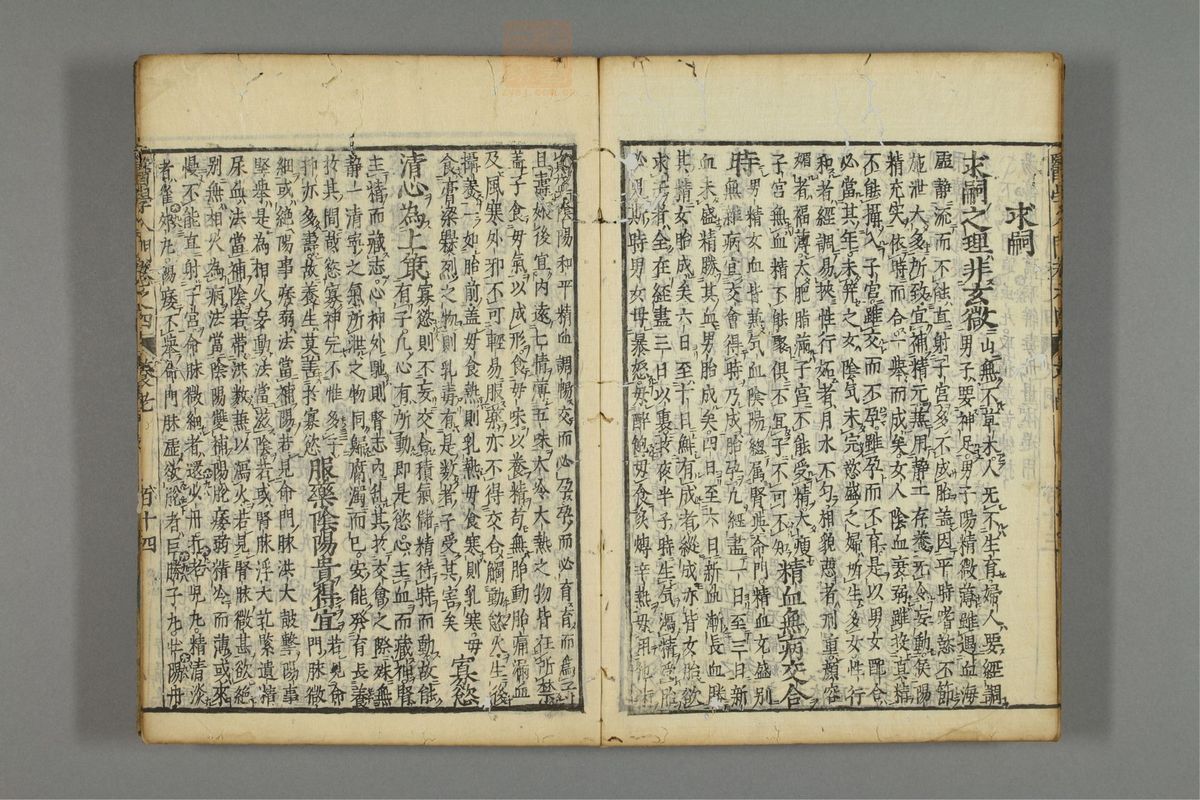 求嗣
求嗣之理非玄微山無不草木人無不生育婦人要經調
男子要神足男子陽精微薄雖遇血海
虛靜流而不能直射子宮多不成胎蓋因平時嗜慾不節
施泄太多所致宜補精元兼用靜工存養無令妄動候陽
精充實依時而合一舉而成矣女人陰血衰弱雖投真精
不能攝入子宮雖交而不孕雖孕而不育是以男女配合
必當其年未笄之女陰氣未完慾盛之婦所生多女性行
和者經調易挾性行妬者月水不匀相貌惡者刑重顏容
媚者福薄太肥脂滿子宮不能受精太瘦
子宮無血精不能聚俱不宜子不可不知精血無病交合
時男精女血皆兼氣血陰陽總屬腎與命門精血充盛別
無雜病宜交會得時乃成胎孕凡經盡一日至三日新
血未盛精勝其血男胎成矣四日至六日新血漸長血勝
其精女胎成矣六日至十日鮮有成者縱成亦皆女胎欲
求子者全在經盡三日以裏夜半子時生氣瀉精受胎
必男斯時男女毋暴怒毋醉飽毋食炙煿辛熱毋用
陰陽和平精血調暢交而必孕孕而必育育而為子
且壽娠後宜內遠七情薄五味大冷大熱之物皆在所禁
蓋子食毋氣以成形食毋味以養精苟無胎動胎痛瀉血
及風寒外邪不可輕易服藥亦不得交合觸動慾火生後
搐菱一如胎前蓋毋食熱則乳熱毋食寒則乳寒毋
食膏粱烈之物則乳毒有是數者子受其害矣 寡慾
清心為上策寡慾則不妄交合積氣儲精待時而動故能
有子凡心有所動即是慾心主血而藏神腎
主精而藏志心神外馳則腎志內亂其於交會之際殊無
靜一清寧之氣所泄之物同歸腐濁而已安能發有長養
於其間哉慾寡神完不惟多子
抑亦多壽故養生莫善於寡慾服藥陰陽貴得宜若見命
門脉微
細或絕陽事痿弱法當補陽若見命門脉洪大鼓擊陽事
堅舉是為相火妄動法當滋陰若或腎脉浮大乳緊遺精
尿血法當補陰若帶洪數兼以瀉火若見腎脉微甚欲絕
別無相火為病法當陰陽雙補陽脫痿弱精冷而薄或來
慢不能直射子宮命脉微細者還少丹打老兒丸精清淡
者雀卵丸陽痿不舉命門脉虛欲脫者巨勝子丸壯陽丹
百十四